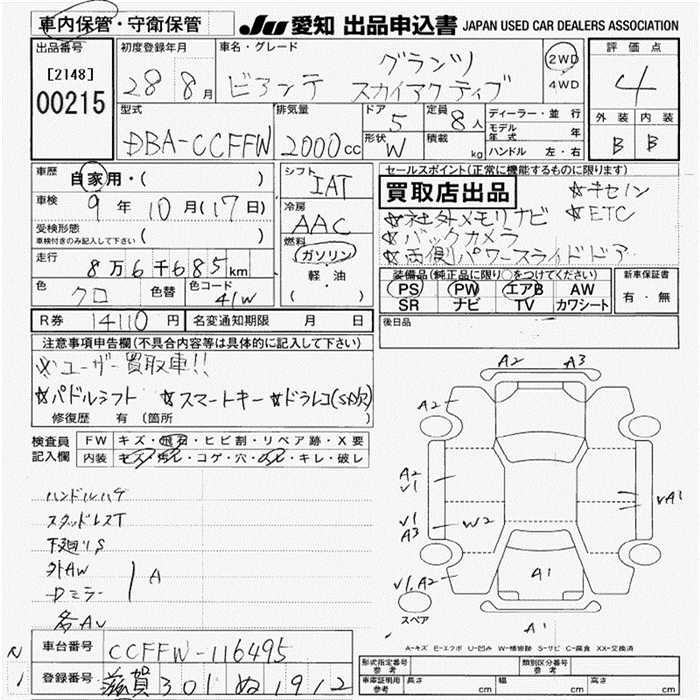 車内保管・守衛保管
JU 愛知 出品申込書 JAPAN USED CAR DEALERS ASSOCIATION
出品番号
[2148]
00215
初度登録年月
28 8月
車名・グレード
グランツ
ビアンテ スカイアクティブ
2WD
4WD
評価点
4
外装 内装
B B
型式
DBA-CCFFW
排気量
2000cc
ドア 5
形状 W
定員 8人
積載 kg
ディーラー・並行
モデル年式 年
ハンドル 左・右
車歴 自家用・( )
車検 9年10月(17日)
受検形態
車検付きのみ記入して下さい ( )
走行 8万6千685km
色 クロ 色替 色コード 41W
シフト IAT
冷房 AAC
燃料
ガソリン
軽・油
( )
セールスポイント(正常に機能するものに限ります)
買取店出品
☆キセノン
☆社外メモリナビ ☆ETC
☆バックカメラ
☆両側パワースライドドア
装備品(純正品に限り○をつけてください)
PS PW エアB AW
SR ナビ TV カワシート
新車保証書
有・無
R券 14110円 名変通知期限 月 日
後日品
注意事項申告欄(不具合内容等は具体的に記入して下さい)
※ユーザー買取車!!
☆パドルシフト ☆スマートキー ☆ドラレコ(SD欠)
修復歴 有 (箇所 )
検査員記入欄
FW キズ・飛石・ヒビ割・リペア跡・X要
内装 キズ・汚レ・コゲ・穴・スレ・キレ・破レ
ハンドルハゲ
スタッドレスT
下廻りS
外AW
Dミラー A
各AV
A2 A3
A2
A2
V1
V1
A3
W2
VA1
V1.A2
A1
A1
スペア
A-キズ E-エクボ U-凹み W-補修跡 S-サビ C-腐食 XX-交換済
N
1
車台番号 CCFFW-116495
登録番号 滋賀 301 ぬ 1912
形式指定番号 参考
類別区分番号 参考
車庫証明用 参考 長さ cm 幅 cm 高さ cm